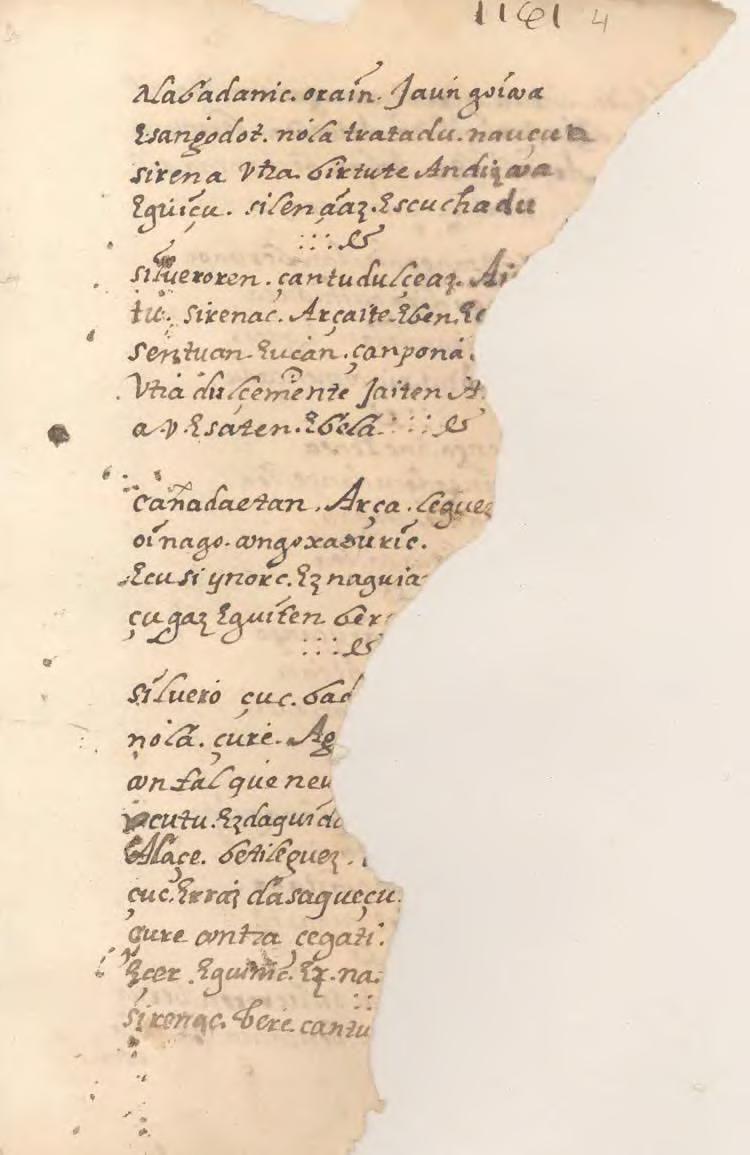 1161 4
Alabadanic. orain. Jaun goicoa
Esangodot. nola tratadu. nauçun
sirena Vtra. birtute Andiçcoa
Eguiçu. silençiaz. Escuchadu
:::&
silueroren. çantu dulçeaz.
tu. sirenac. Arçaite. Eben.
sentuan. Eucan. çanpona.
Vtra dulçemente Jaiten
a V. Esaten. Ebela :::&
cañadaetan. Arça. leguez
oinago. congoxaturic.
Ecusi ynorc. Ez naguia
çugaz Eguiten
:::&
siluero çuc. bad
nola. çure. Ag
con tal que neu
Ez daguida
Alaçe. beti leguez.
çuc. Erraz dasagueçu.
çure contra çegati.
Ecer. Eguinic. Ez. na
::
sirenac. bere. cantu